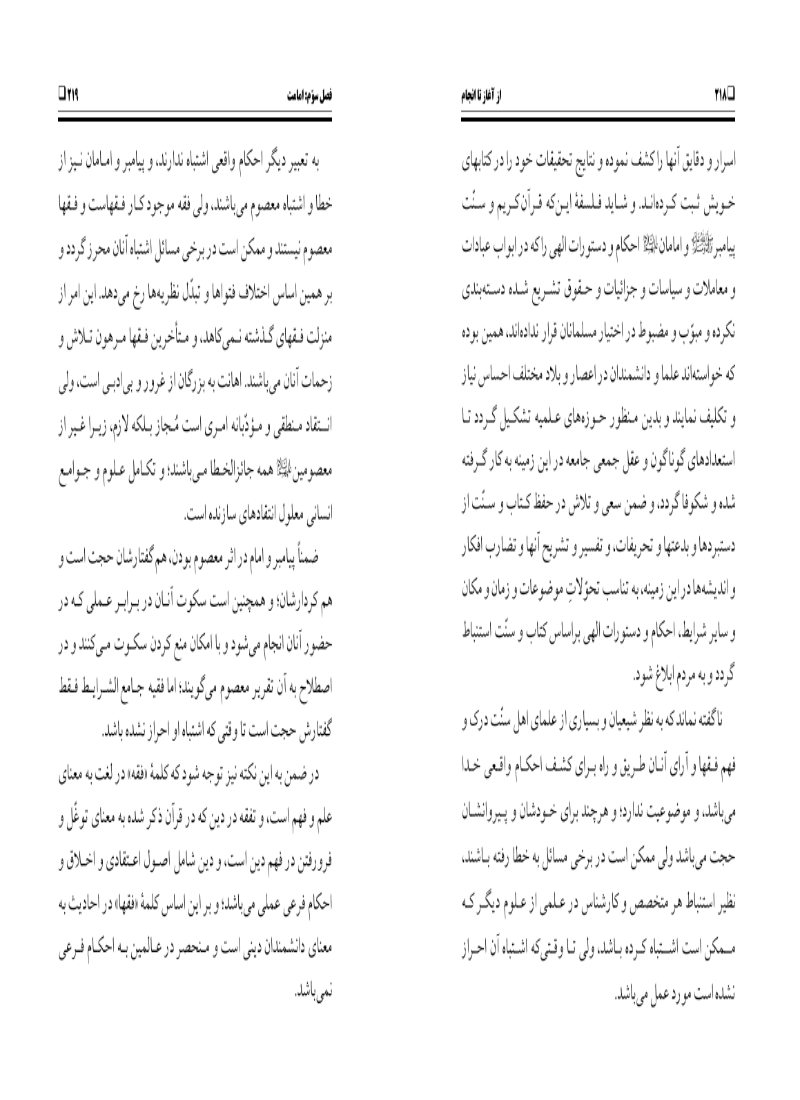 ❏ ۲۱۸
از آغاز تا انجام
اسرار و دقایق آنها را کشف نموده و نتایج تحقیقات خود را در کتابهای
خویش ثبت کرده‌اند. و شاید فلسفهٔ این‌که قرآن‌کریم و سنّت
پیامبرﷺ و امامان احکام و دستورات الهی را که در ابواب عبادات
و معاملات و سیاسات و جزائیات و حقوق تشریع شده دسته‌بندی
نکرده و مبوّب و مضبوط در اختیار مسلمانان قرار نداده‌اند، همین بوده
که خواسته‌اند علما و دانشمندان در اعصار و بلاد مختلف احساس نیاز
و تکلیف نمایند و بدین منظور حوزه‌های علمیه تشکیل گردد تا
استعدادهای گوناگون و عقل جمعی جامعه در این زمینه به کار گرفته
شده و شکوفا گردد، و ضمن سعی و تلاش در حفظ کتاب و سنّت از
دستبردها و بدعتها و تحریفات، و تفسیر و تشریح آنها و تضارب افکار
و اندیشه‌ها در این زمینه، به تناسب تحوّلاتِ موضوعات و زمان و مکان
و سایر شرایط، احکام و دستورات الهی براساس کتاب و سنّت استنباط
گردد و به مردم ابلاغ شود.
ناگفته نماند که به نظر شیعیان و بسیاری از علمای اهل سنّت درک و
فهم فقها و آرای آنان طریق و راه برای کشف احکام واقعی خدا
می‌باشد، و موضوعیت ندارد؛ و هرچند برای خودشان و پیروانشان
حجت می‌باشد ولی ممکن است در برخی مسائل به خطا رفته باشند،
نظیر استنباط هر متخصص و کارشناس در علمی از علوم دیگر که
ممکن است اشتباه کرده باشد، ولی تا وقتی‌که اشتباه آن احراز
نشده است مورد عمل می‌باشد.
فصل سوّم: امامت
۲۱۹ ❏
به تعبیر دیگر احکام واقعی اشتباه ندارند، و پیامبر و امامان نیز از
خطا و اشتباه معصوم می‌باشند، ولی فقه موجود کار فقهاست و فقها
معصوم نیستند و ممکن است در برخی مسائل اشتباه آنان محرز گردد و
بر همین اساس اختلاف فتواها و تبدّل نظریه‌ها رخ می‌دهد. این امر از
منزلت فقهای گذشته نمی‌کاهد، و متأخرین فقها مرهون تلاش و
زحمات آنان می‌باشند. اهانت به بزرگان از غرور و بی‌ادبی است، ولی
انتقاد منطقی و مؤدّبانه امری است مُجاز بلکه لازم، زیرا غیر از
معصومین همه جائزالخطا می‌باشند؛ و تکامل علوم و جوامع
انسانی معلول انتقادهای سازنده است.
ضمناً پیامبر و امام در اثر معصوم بودن، هم گفتارشان حجت است و
هم کردارشان؛ و همچنین است سکوت آنان در برابر عملی که در
حضور آنان انجام می‌شود و با امکان منع کردن سکوت می‌کنند و در
اصطلاح به آن تقریر معصوم می‌گویند؛ اما فقیه جامع الشرایط فقط
گفتارش حجت است تا وقتی که اشتباه او احراز نشده باشد.
در ضمن به این نکته نیز توجه شود که کلمهٔ «فقه» در لغت به معنای
علم و فهم است، و تفقه در دین که در قرآن ذکر شده به معنای توغّل و
فرورفتن در فهم دین است، و دین شامل اصول اعتقادی و اخلاق و
احکام فرعی عملی می‌باشد؛ و بر این اساس کلمهٔ «فقها» در احادیث به
معنای دانشمندان دینی است و منحصر در عالمین به احکام فرعی
نمی‌باشد.